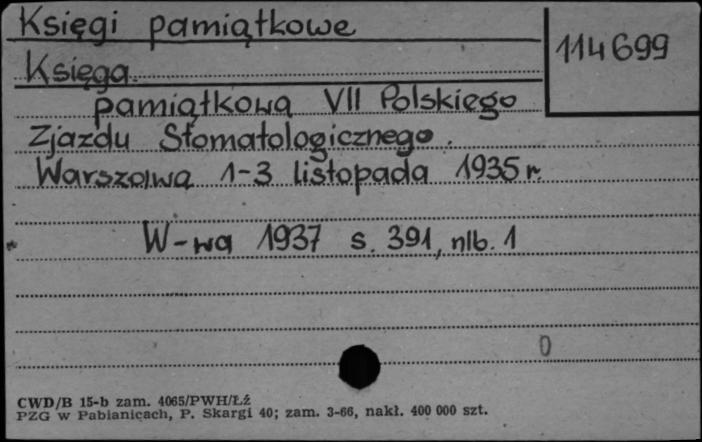 Księgi pamiątkowe
114699
Księga
pamiątkowa VII Polskiego
Zjazdu Stomatologicznego.
Warszawa 1-3 listopada 1935 r.
W-wa 1937 s. 391, nlb. 1
0
CWD/B 15-b zam. 4065/PWH/Łź
PZG w Pabianicach, P. Skargi 40; zam. 3-66, nakł. 400 000 szt.